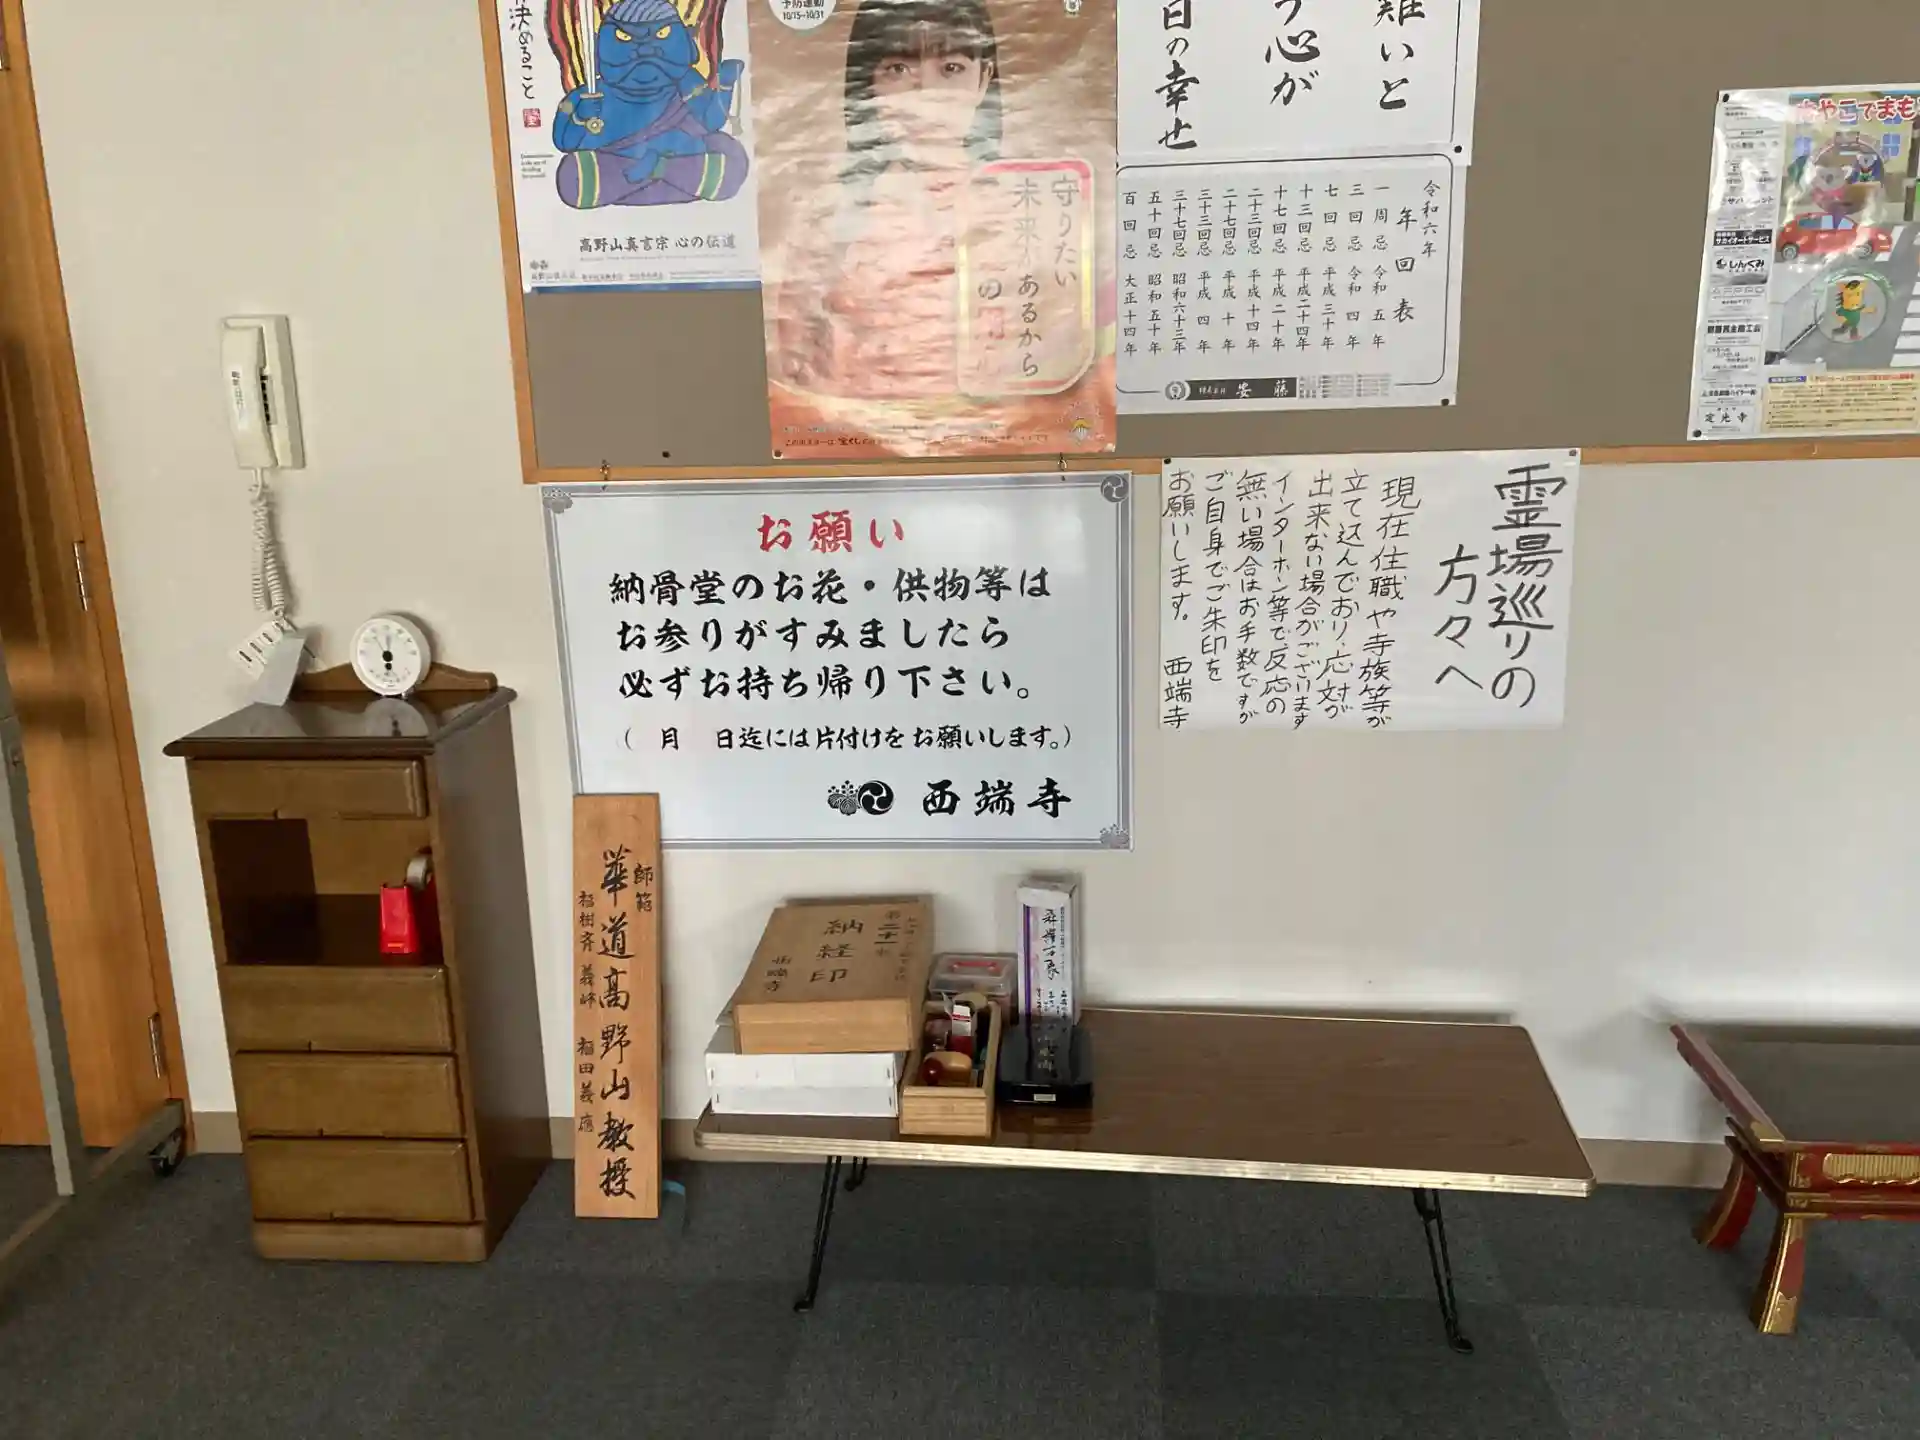 決めること
高野山真言宗 心の伝道
予防運動
10/15~10/31
守りたい
未来があるから
難いと
う心が
日の幸せ
令和六年
年回表
一周忌 令和五年
三回忌 令和四年
七回忌 平成三十年
十三回忌 平成二十四年
十七回忌 平成二十年
二十三回忌 平成十四年
二十七回忌 平成十年
三十三回忌 平成四年
三十七回忌 昭和六十三年
五十回忌 昭和五十年
百回忌 大正十四年
安藤
みやこでまも
サカイオートサービス
しんくみ
定光寺
お願い
納骨堂のお花・供物等は
お参りがすみましたら
必ずお持ち帰り下さい。
( 月 日迄には片付けをお願いします。)
西端寺
霊場巡りの
方々へ
現在住職や寺族等が
立て込んでおり、応対が
出来ない場合がございます
インターホン等で、反応の
無い場合はお手数ですが
ご自身でご朱印を
お願いします。 西端寺
師範
華道高野山教授
稲田義應
納経印
西端寺